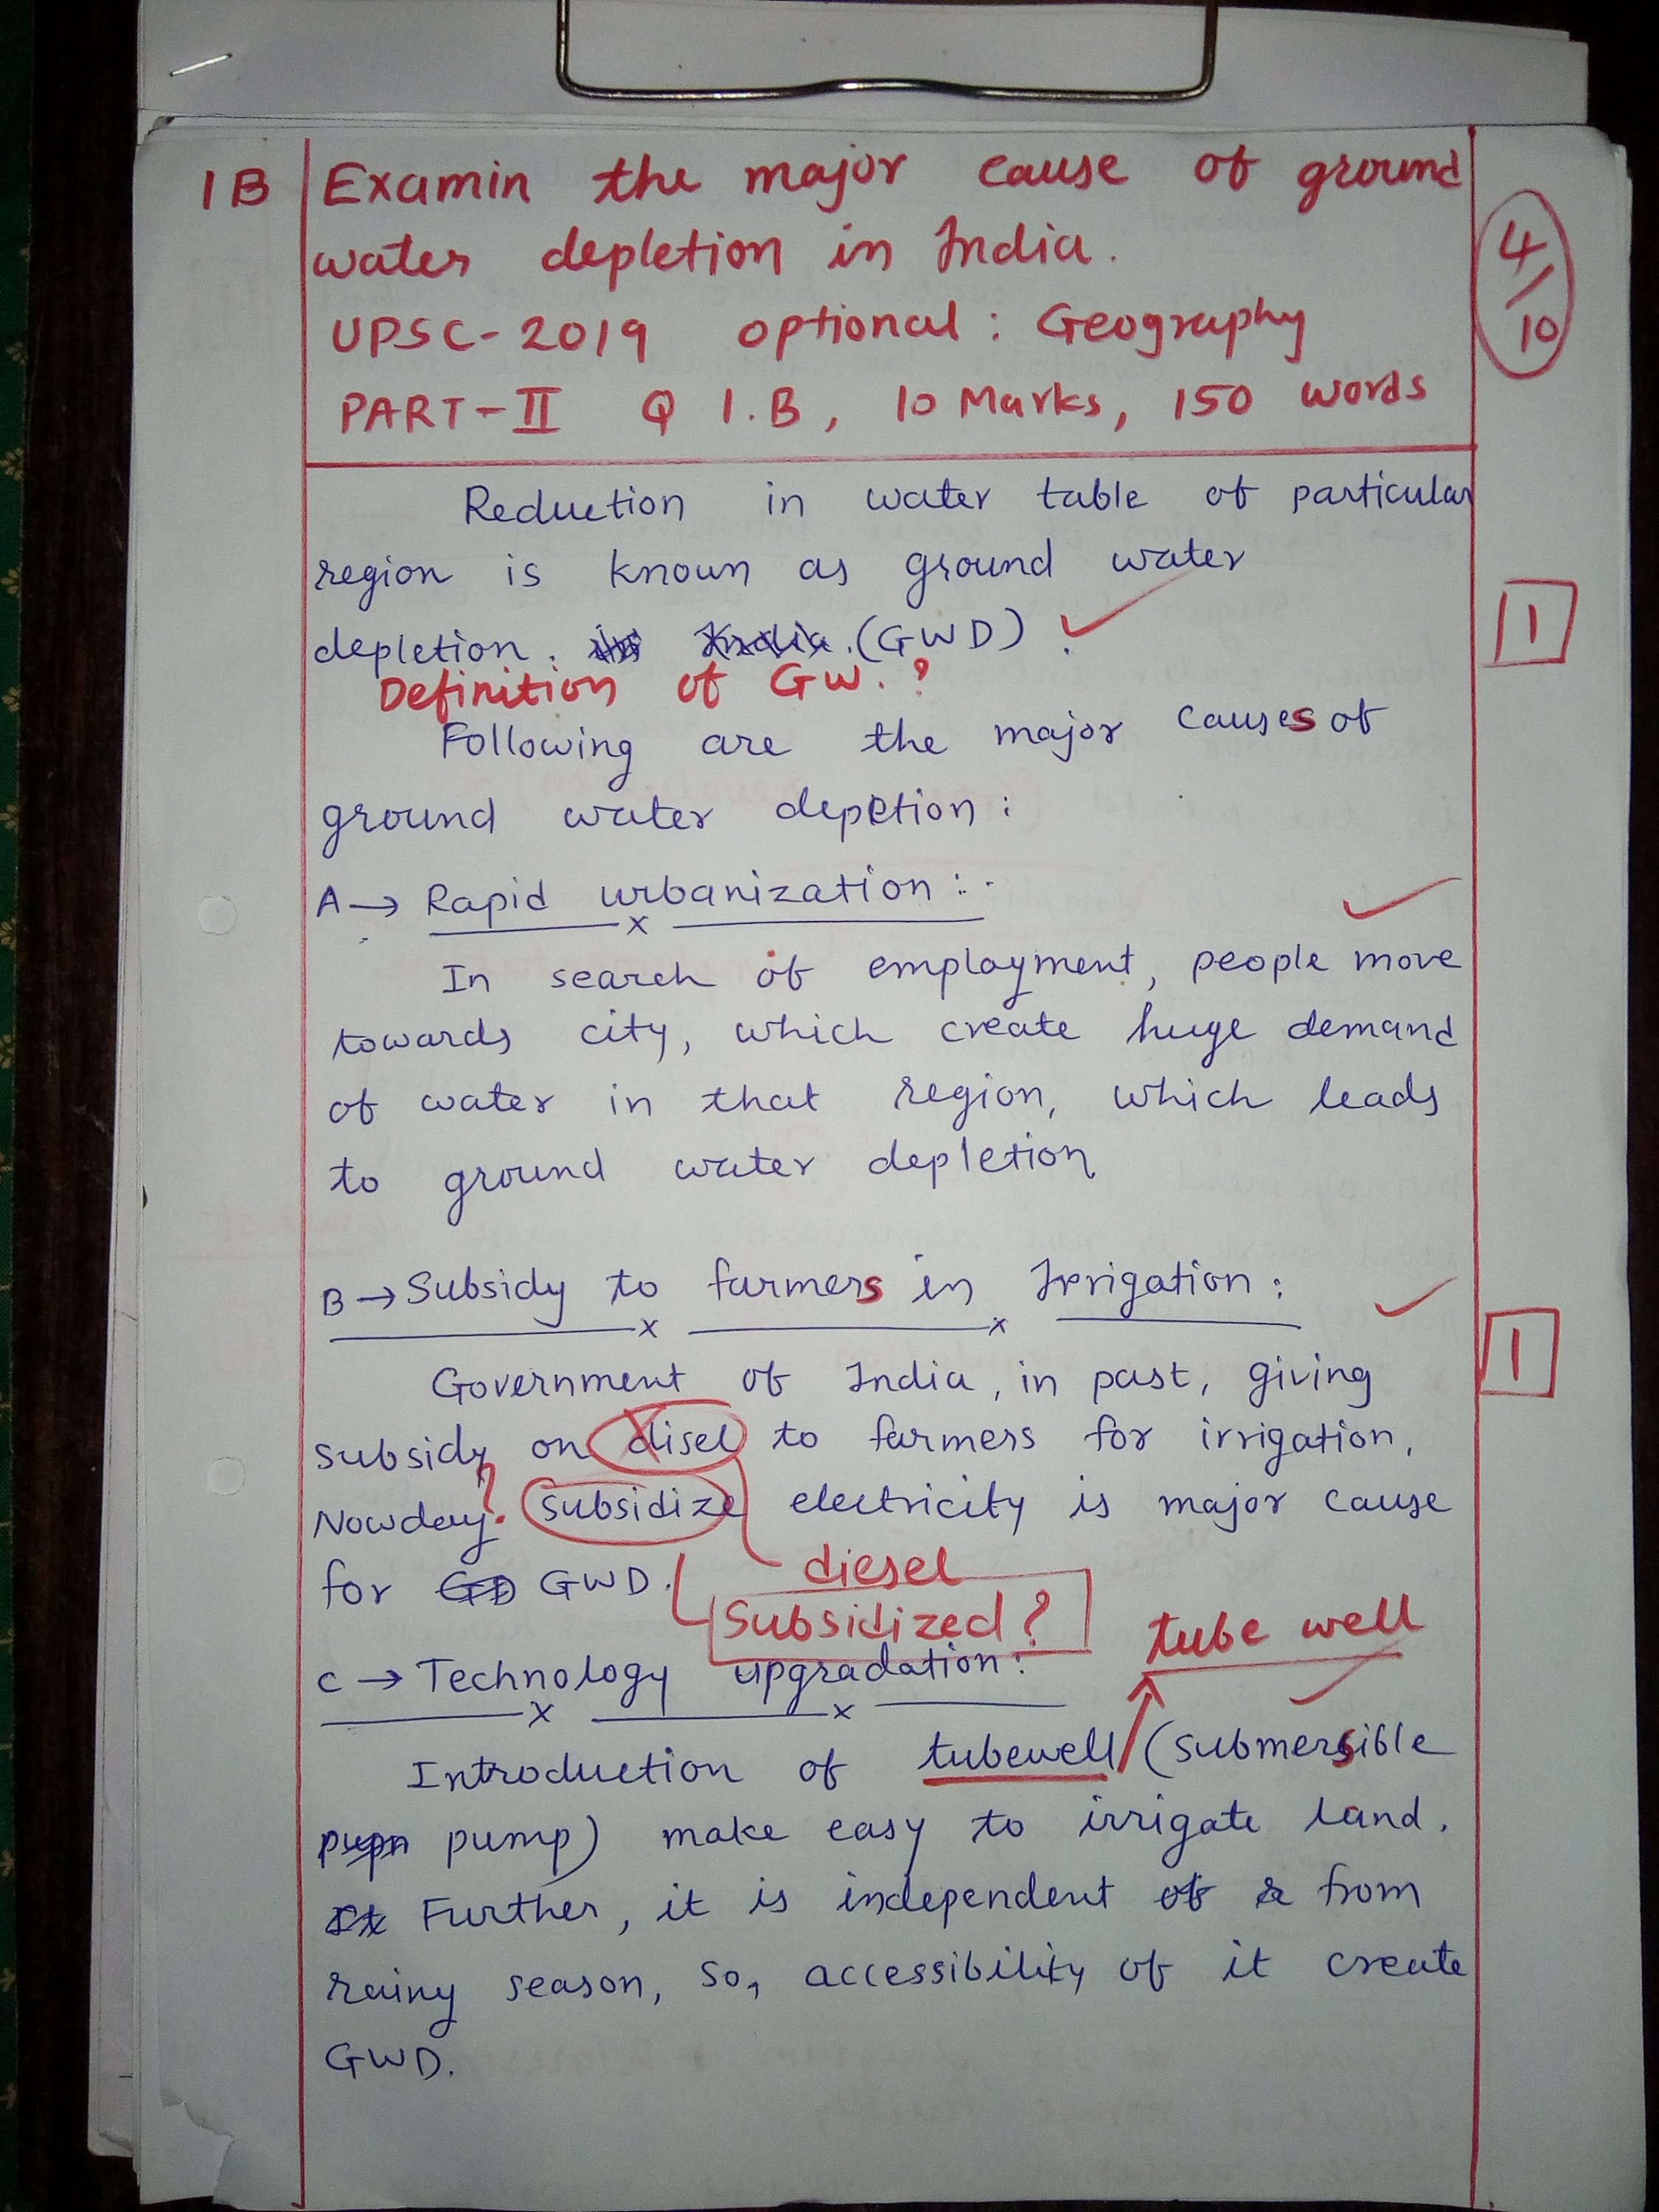 1B Examin the major cause of ground
water depletion in India.
UPSC-2019 optional: Geography
PART-II Q 1.B, 10 Marks, 150 words
4/10
Reduction in water table of particular
region is known as ground water
depletion. (GWD)
1
Definition of GW.?
Following are the major causes of
ground water depletion:
A→ Rapid urbanization:-
In search of employment, people move
towards city, which create huge demand
of water in that region, which leads
to ground water depletion
B→ Subsidy to farmers in Irrigation:
1
Government of India, in past, giving
subsidy on disel to farmers for irrigation,
Nowday? subsidize electricity is major cause
for GD GWD.
diesel
Subsidized?
tube well
C→ Technology upgradation:
Introduction of tubewell (submersible
pupn pump) make easy to irrigate land.
It Further, it is independent of r from
rainy season, so, accessibility of it create
GWD.